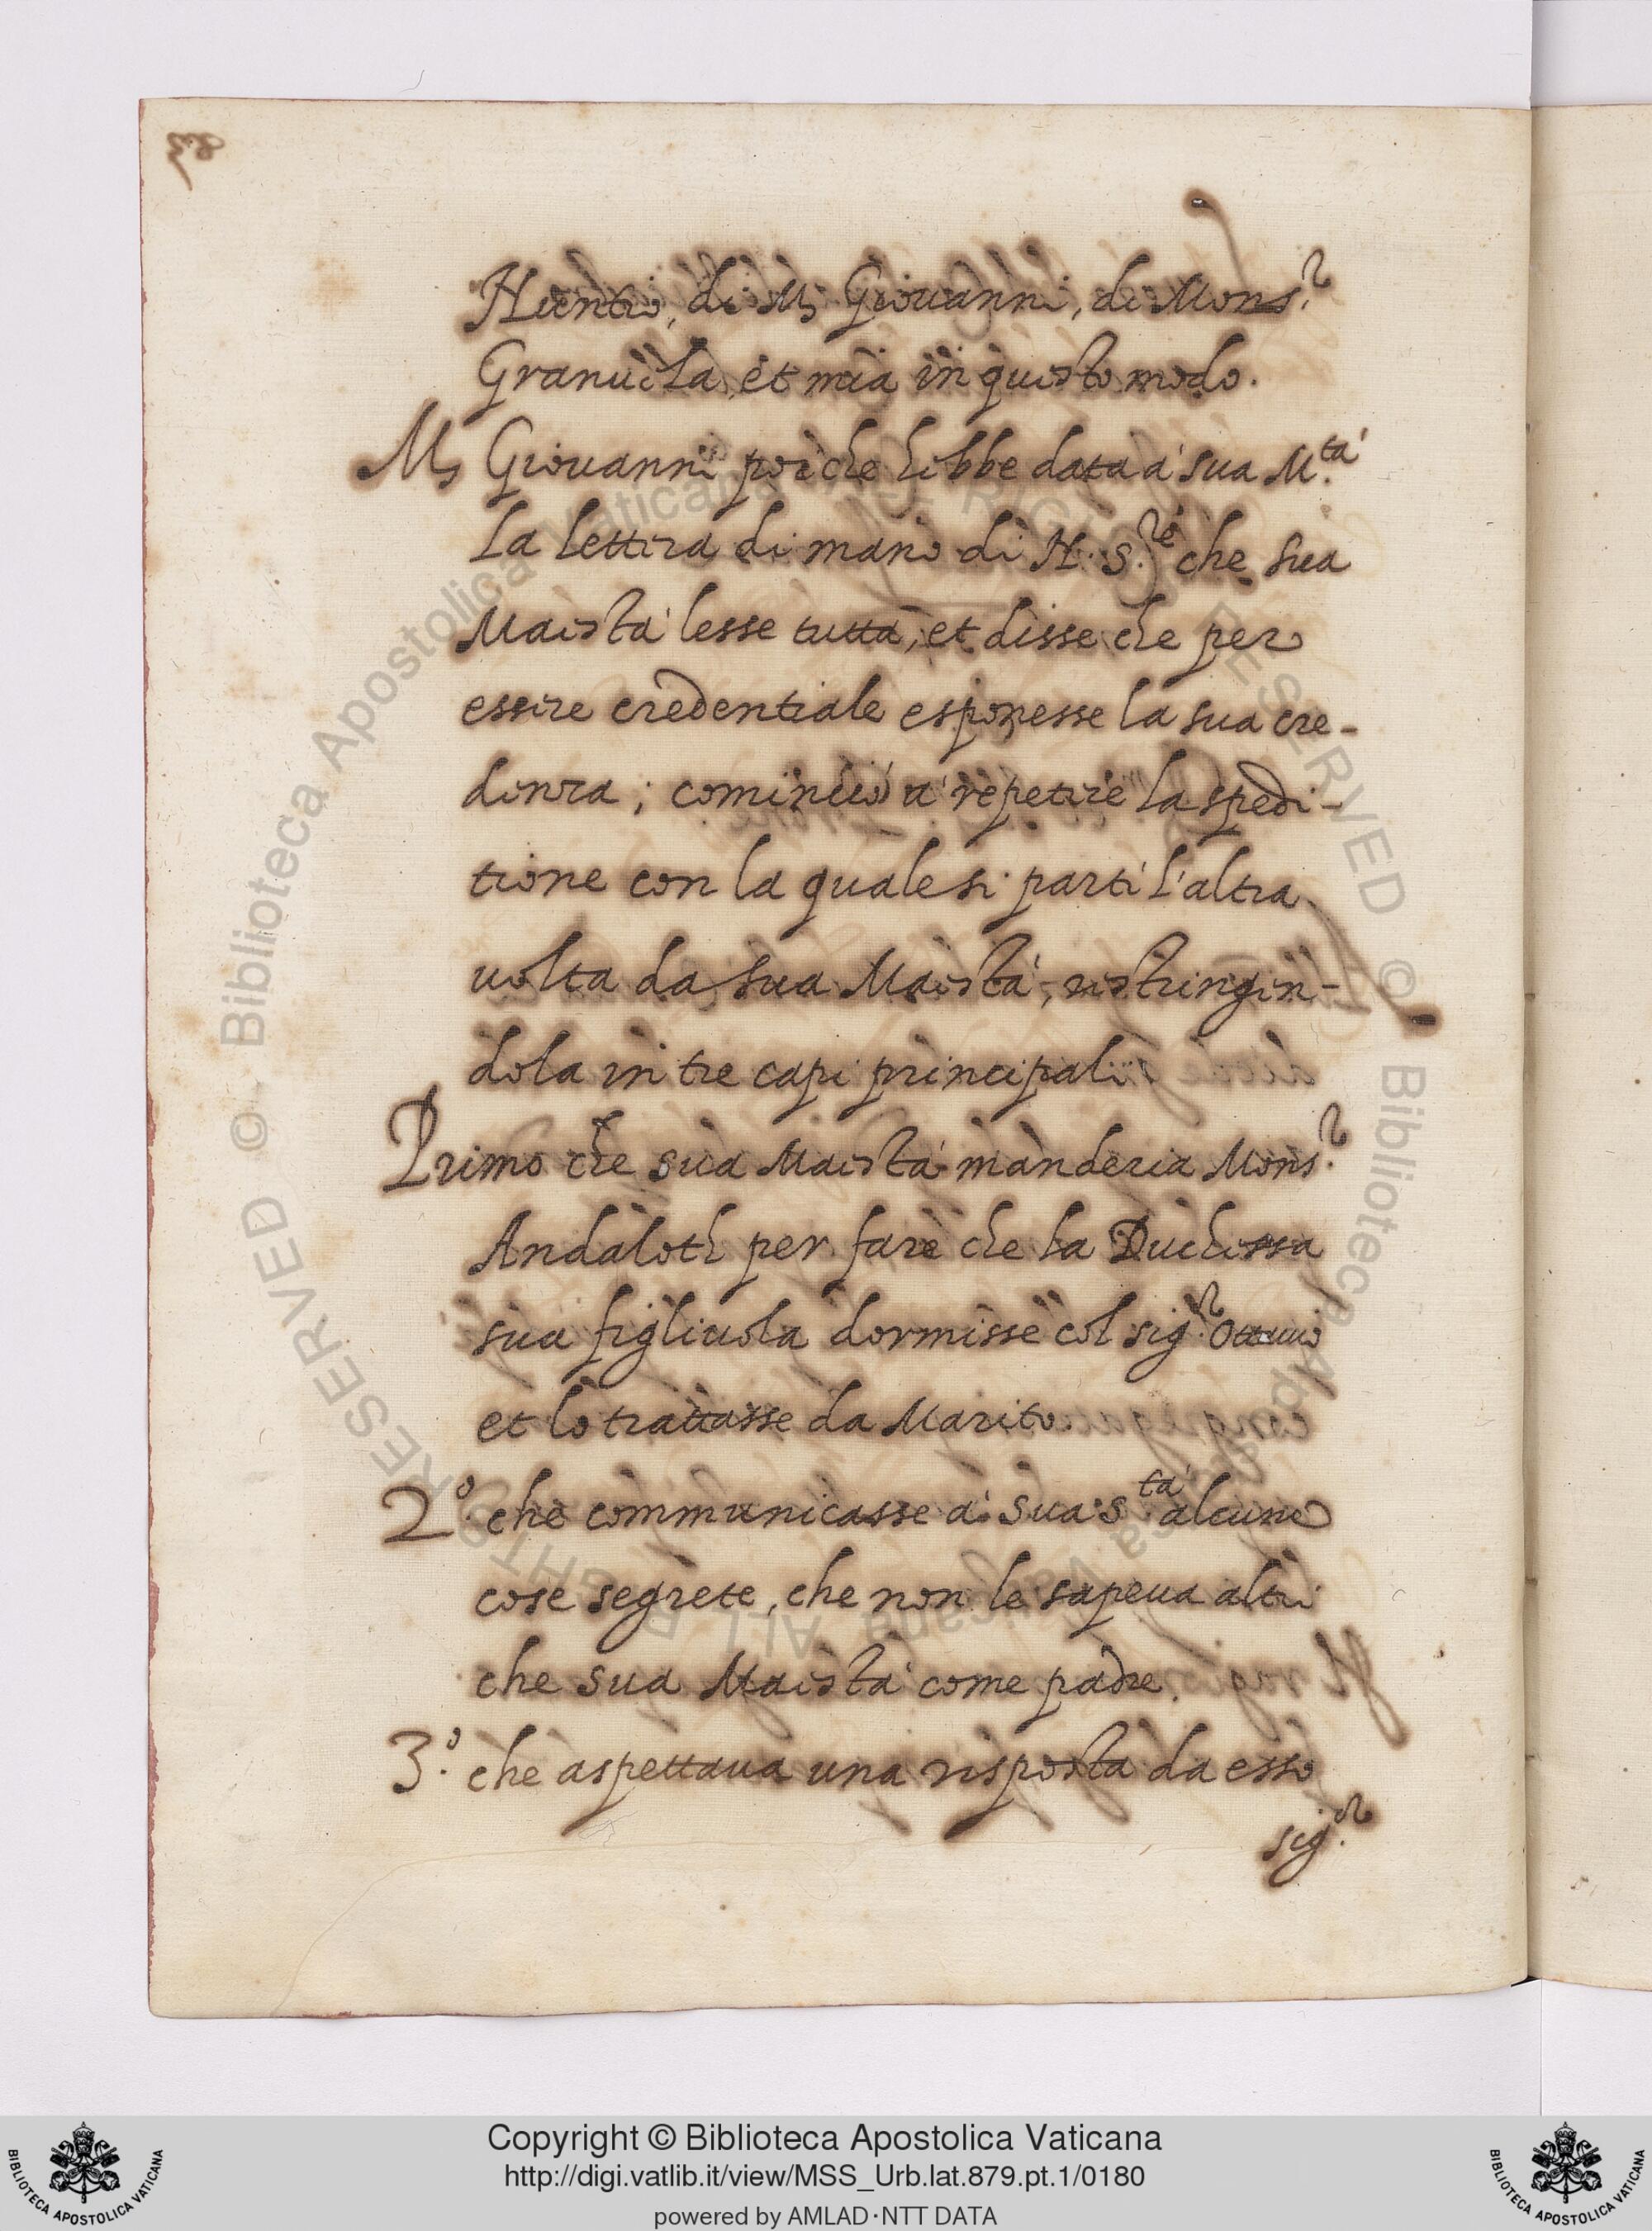 Nuntio, di Ms Giouanni, di Mons.r
Granuela, et mia in questo modo.
Ms Giouanni poiche hebbe data a' sua M.tà
la lettera di mano di N. S.re che sua
Maestà lesse tutta, et disse che per
essere credentiale esponesse la sua cre-
denza; cominciò a' repetire la spedi-
tione con la quale si partì l'altra
uolta da sua Maestà, restringen-
dola in tre capi principali
Primo che sua Maestà manderia Mons.r
Andaloth per fare che la Duchessa
sua figliuola dormisse col sig.r Ottauio
et lo trattasse da Marito.
2.o che communicasse a' sua S.tà alcune
cose segrete, che non le sapeua altri
che sua Maestà come padre.
3.o che aspettaua una risposta da esso
sig.r
© Biblioteca Apostolica Vaticana ALL RIGHTS RESERVED © Biblioteca Apostolica Vaticana ALL RIGHTS RESERVED
Copyright © Biblioteca Apostolica Vaticana
http://digi.vatlib.it/view/MSS_Urb.lat.879.pt.1/0180
powered by AMLAD·NTT DATA
BIBLIOTECA APOSTOLICA VATICANA
BIBLIOTECA APOSTOLICA VATICANA